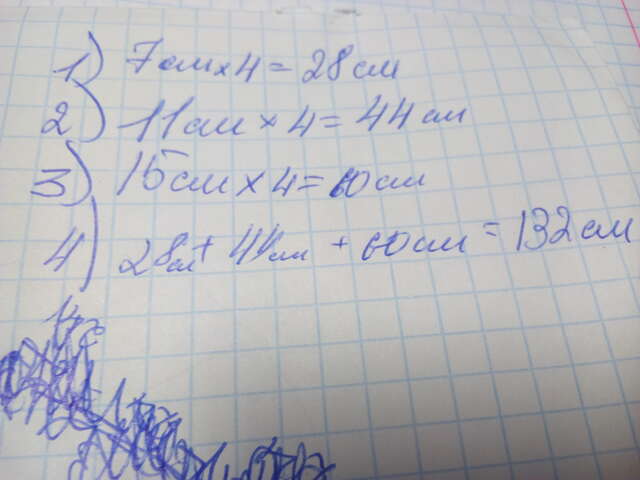 1) 7см x 4 = 28 см
2) 11см x 4 = 44 см
3) 15см x 4 = 60см
4) 28см + 44см + 60см = 132 см